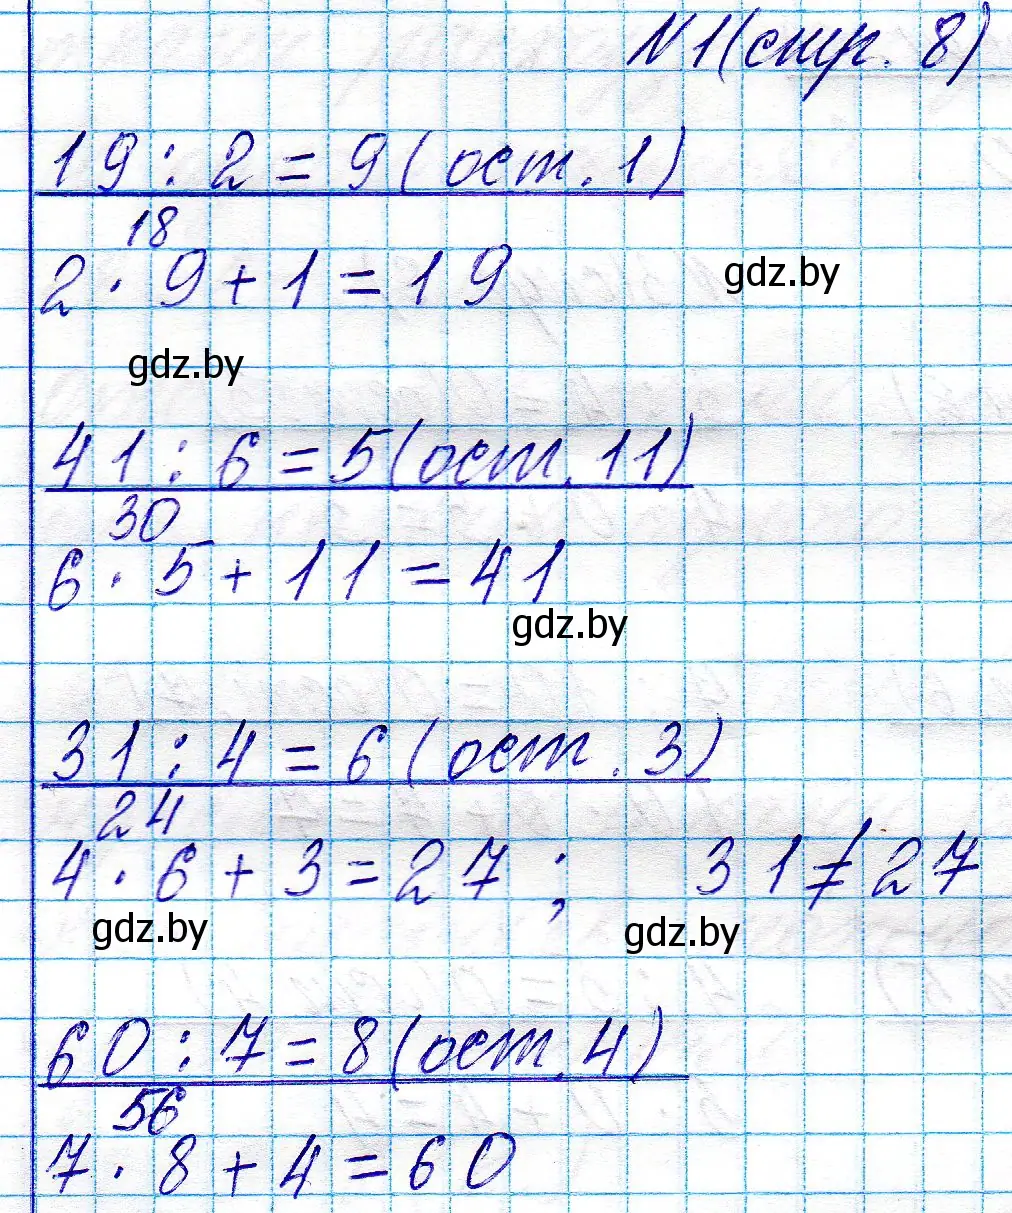 N1(стр. 8)
19 : 2 = 9 (ост. 1)
18
2 · 9 + 1 = 19
gdz.by
gdz.by
41 : 6 = 5 (ост. 11)
30
6 · 5 + 11 = 41
gdz.by
31 : 4 = 6 (ост. 3)
24
4 · 6 + 3 = 27 ; 31 ≠ 27
gdz.by
gdz.by
60 : 7 = 8 (ост. 4)
56
7 · 8 + 4 = 60